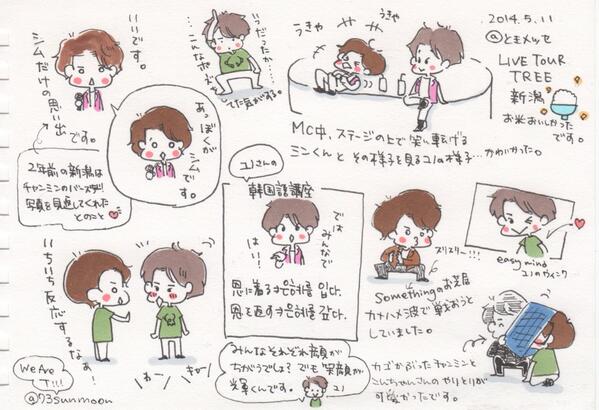 2014.5.11
@ときメッセ
LIVE TOUR
TREE
新潟
お米おいしかった
です。
いいです。
シムだけの思い出
です。
いつだったか…
…こんなポーズ
してた気がする。
うきゃ
うきゃ
MC中、ステージの上で笑い転げる
ミンくんとその様子を見るユノの様子…かわいかった。
あっ
ぼくが
シム
です。
2年前の新潟は
チャンミンのバースデー!
写真を見返してくれた
とのこと
ユノさんの
韓国語講座
では
みんなで
はい!
恩に着る 은혜를 입다.
恩を返す 은혜를 갚다.
ズリズリー!!!
somethingのお芝居
カメハメ波で戦おうと
していました。
easy mind
ユノのウインク
いちいち反応するなぁ!
わーン
キャー!
We Are
T!!!
@93sunmoon
みんなそれぞれ顔が
ちがうでしょ?でも笑顔が
輝くんです。
ユノ
カゴかぶったチャンミンと
こんちゃんさんのやりとりが
可愛かったです。